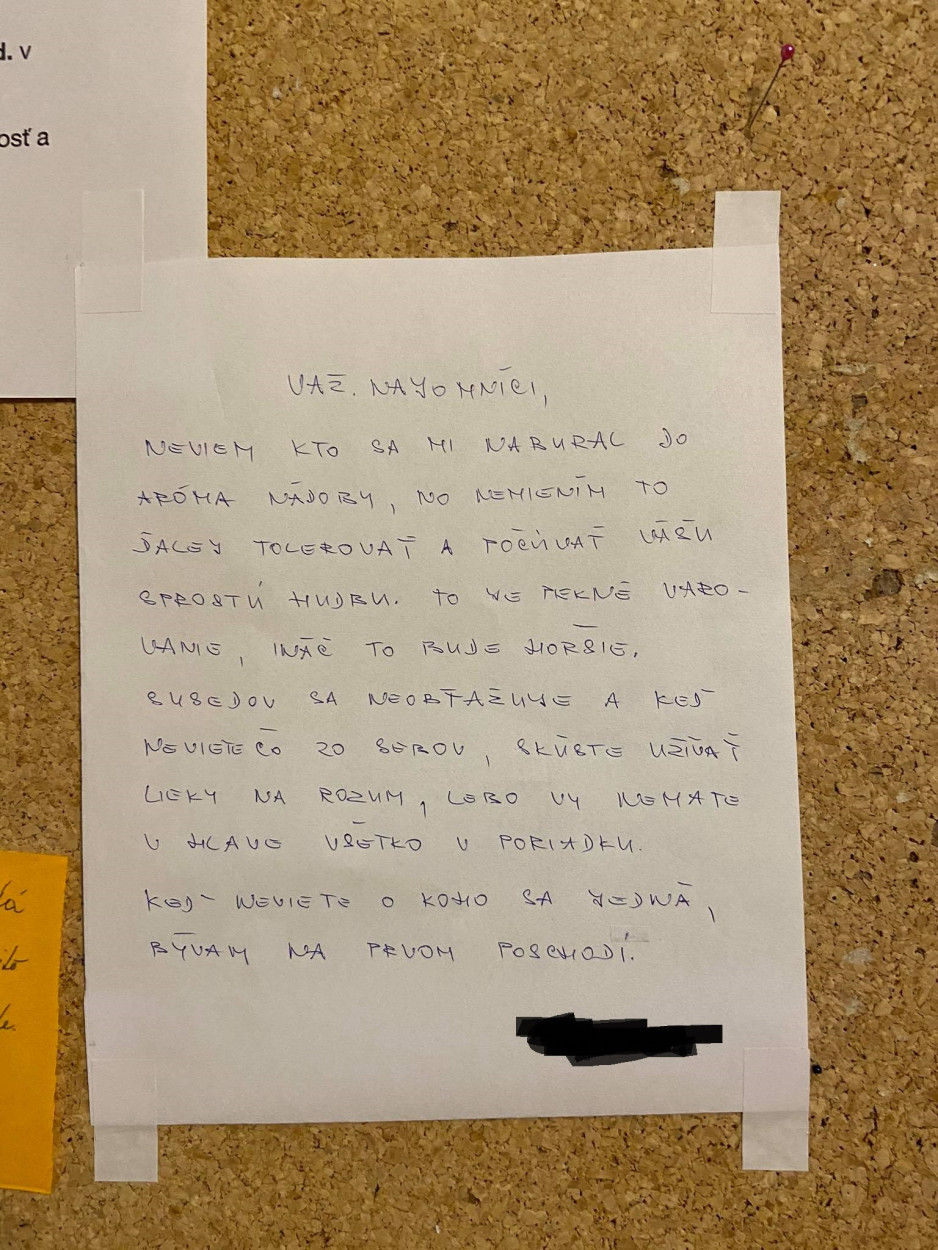 d. v
osť a
VÁŽ. NÁJOMNÍCI,
NEVIEM KTO SA MI NABÚRAL DO
ARÓMA NÁDOBY, NO NEMIENÍM TO
ĎALEJ TOLEROVAŤ A POČÚVAŤ VAŠU
SPROSTÚ HUDBU. TO JE PEKNÉ VARO-
VANIE, INÁČ TO BUDE HORŠIE.
SUSEDOV SA NEOBŤAŽUJE A KEĎ
NEVIETE ČO ZO SEBOU, SKÚSTE UŽÍVAŤ
LIEKY NA ROZUM, LEBO VY NEMATE
V HLAVE VŠETKO V PORIADKU.
KEĎ NEVIETE O KOHO SA JEDNÁ,
BÝVAM NA PRVOM POSCHODÍ.